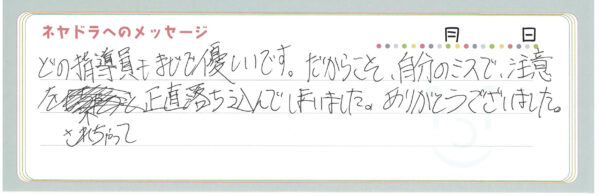 ネヤドラへのメッセージ
月 日
どの指導員もまじで優しいです。だからこそ、自分のミスで、注意
を
されちゃって
正直落ち込んでしまいました。ありがとうございました。